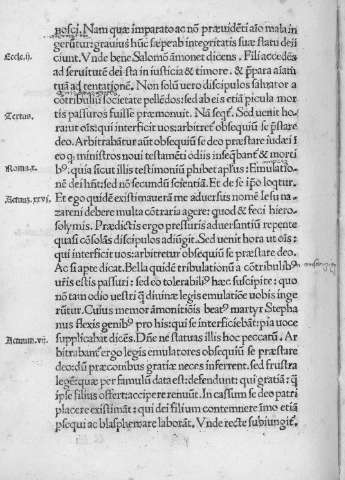 nosci. Nam quæ imparato ac nō præuidēti aīo mala in
gerūtur: grauius hūc sæpe ab integritatis suæ statu deii
Eccle. ii.
ciunt. Vnde bene Salomō āmonet dicens. Fili accedēs
ad seruitutē dei sta in iusticia & timore. & p̄para aīam
tuā ad tentationē. Non solū uero discipulos saluator a
cōtribuliū societate pellēdos: sed ab eis etiā picula mor
Tertius.
tis passuros fuisse præmonuit. Nā seqt̄. Sed uenit ho-
ra: ut oīs: qui interficit uos: arbitret̄ obsequiū se p̄stare
deo. Arbitrabātur aūt obsequiū se deo præstare iudæi ī
eo q ministros noui testamēti odiis insequebant̄ & morti
Roma. x.
bꝰ. quia sicut illis testimoniū phibet apłus: Emulatio-
nē dei hn̄t: sed nō secundū scientiā. Et de se ip̄o loqtur.
Actuū. xxvi.
Et ego quidē existimauerā me aduersus nomē Iesu na-
zareni debere multa cōtraria agere: quod & feci hiero-
solymis. Prædictis ergo pressuris aduersantiū repente
quasi cōsolās discipulos adiūgit. Sed uenit hora ut oīs:
qui interficit uos: arbitretur obsequiū se præstare deo.
Ac si apte dicat. Bella quidē tribulationū a cōtribulibꝰ
ur̄is estis passuri: sed eo tolerabiliꝰ hæc suscipite: quo
nō tam odio uestri q̄ diuinæ legis emulatiōe uobis inge
rūtur. Cuius memor āmonitiōis beatꝰ martyr Stepha
nus flexis genibꝰ pro his: qui se interficiebāt: pia uoce
Actuum. vii.
supplicabat dicēs. Dn̄e ne statuas illis hoc peccatū. Ar
bitrabant̄ ergo legis emulatores obsequiū se præstare
deo: dū præconibus gratiæ neces inferrent. sed frustra
legē: quæ per famulū data est: defendunt: qui gratiā: q̄
ipse filius offert: accipere renuūt. In cassum se deo patri
placere existimāt: qui dei filium contemnere īmo etiā
psequi ac blasphemare laborāt. Vnde recte subiungit̄.